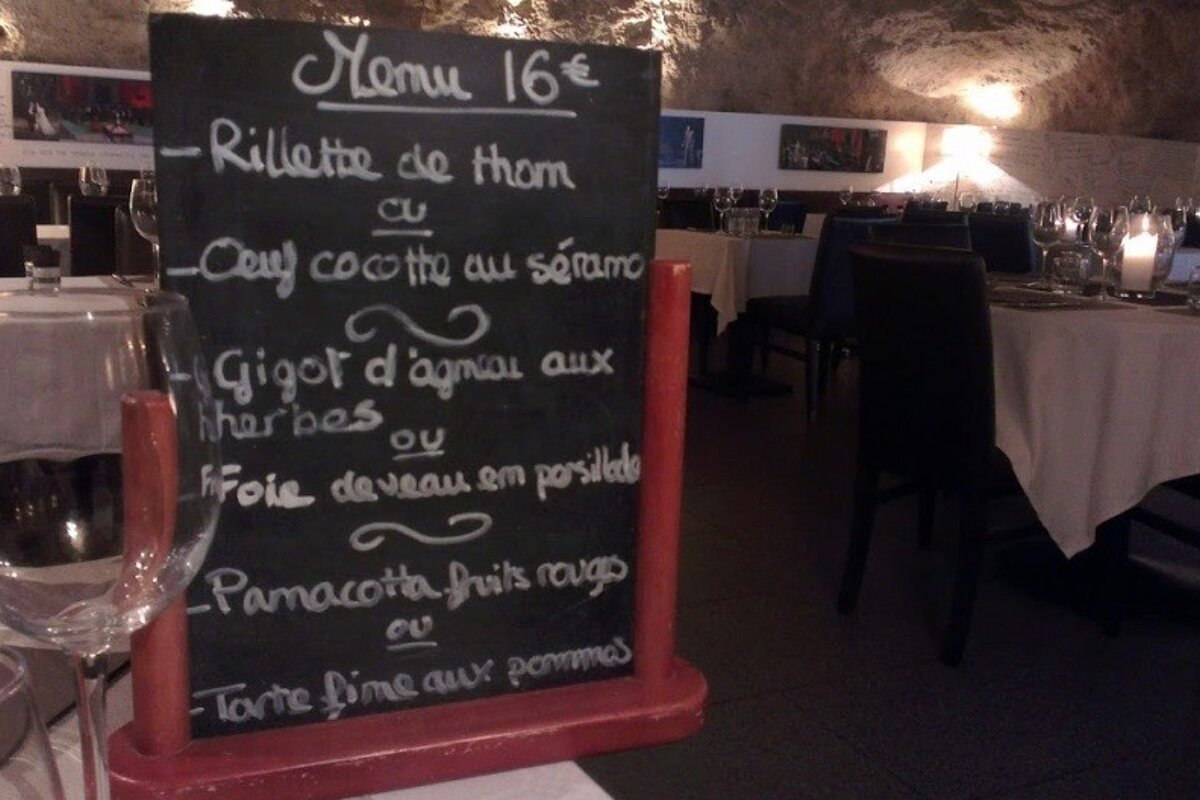 Menu 16€
- Rillette de thon
ou
- Oeuf cocotte au sérano
- Gigot d'agneau aux
herbes
ou
Foie de veau en persillade
- Panacotta fruits rouges
ou
- Tarte fine aux pommes